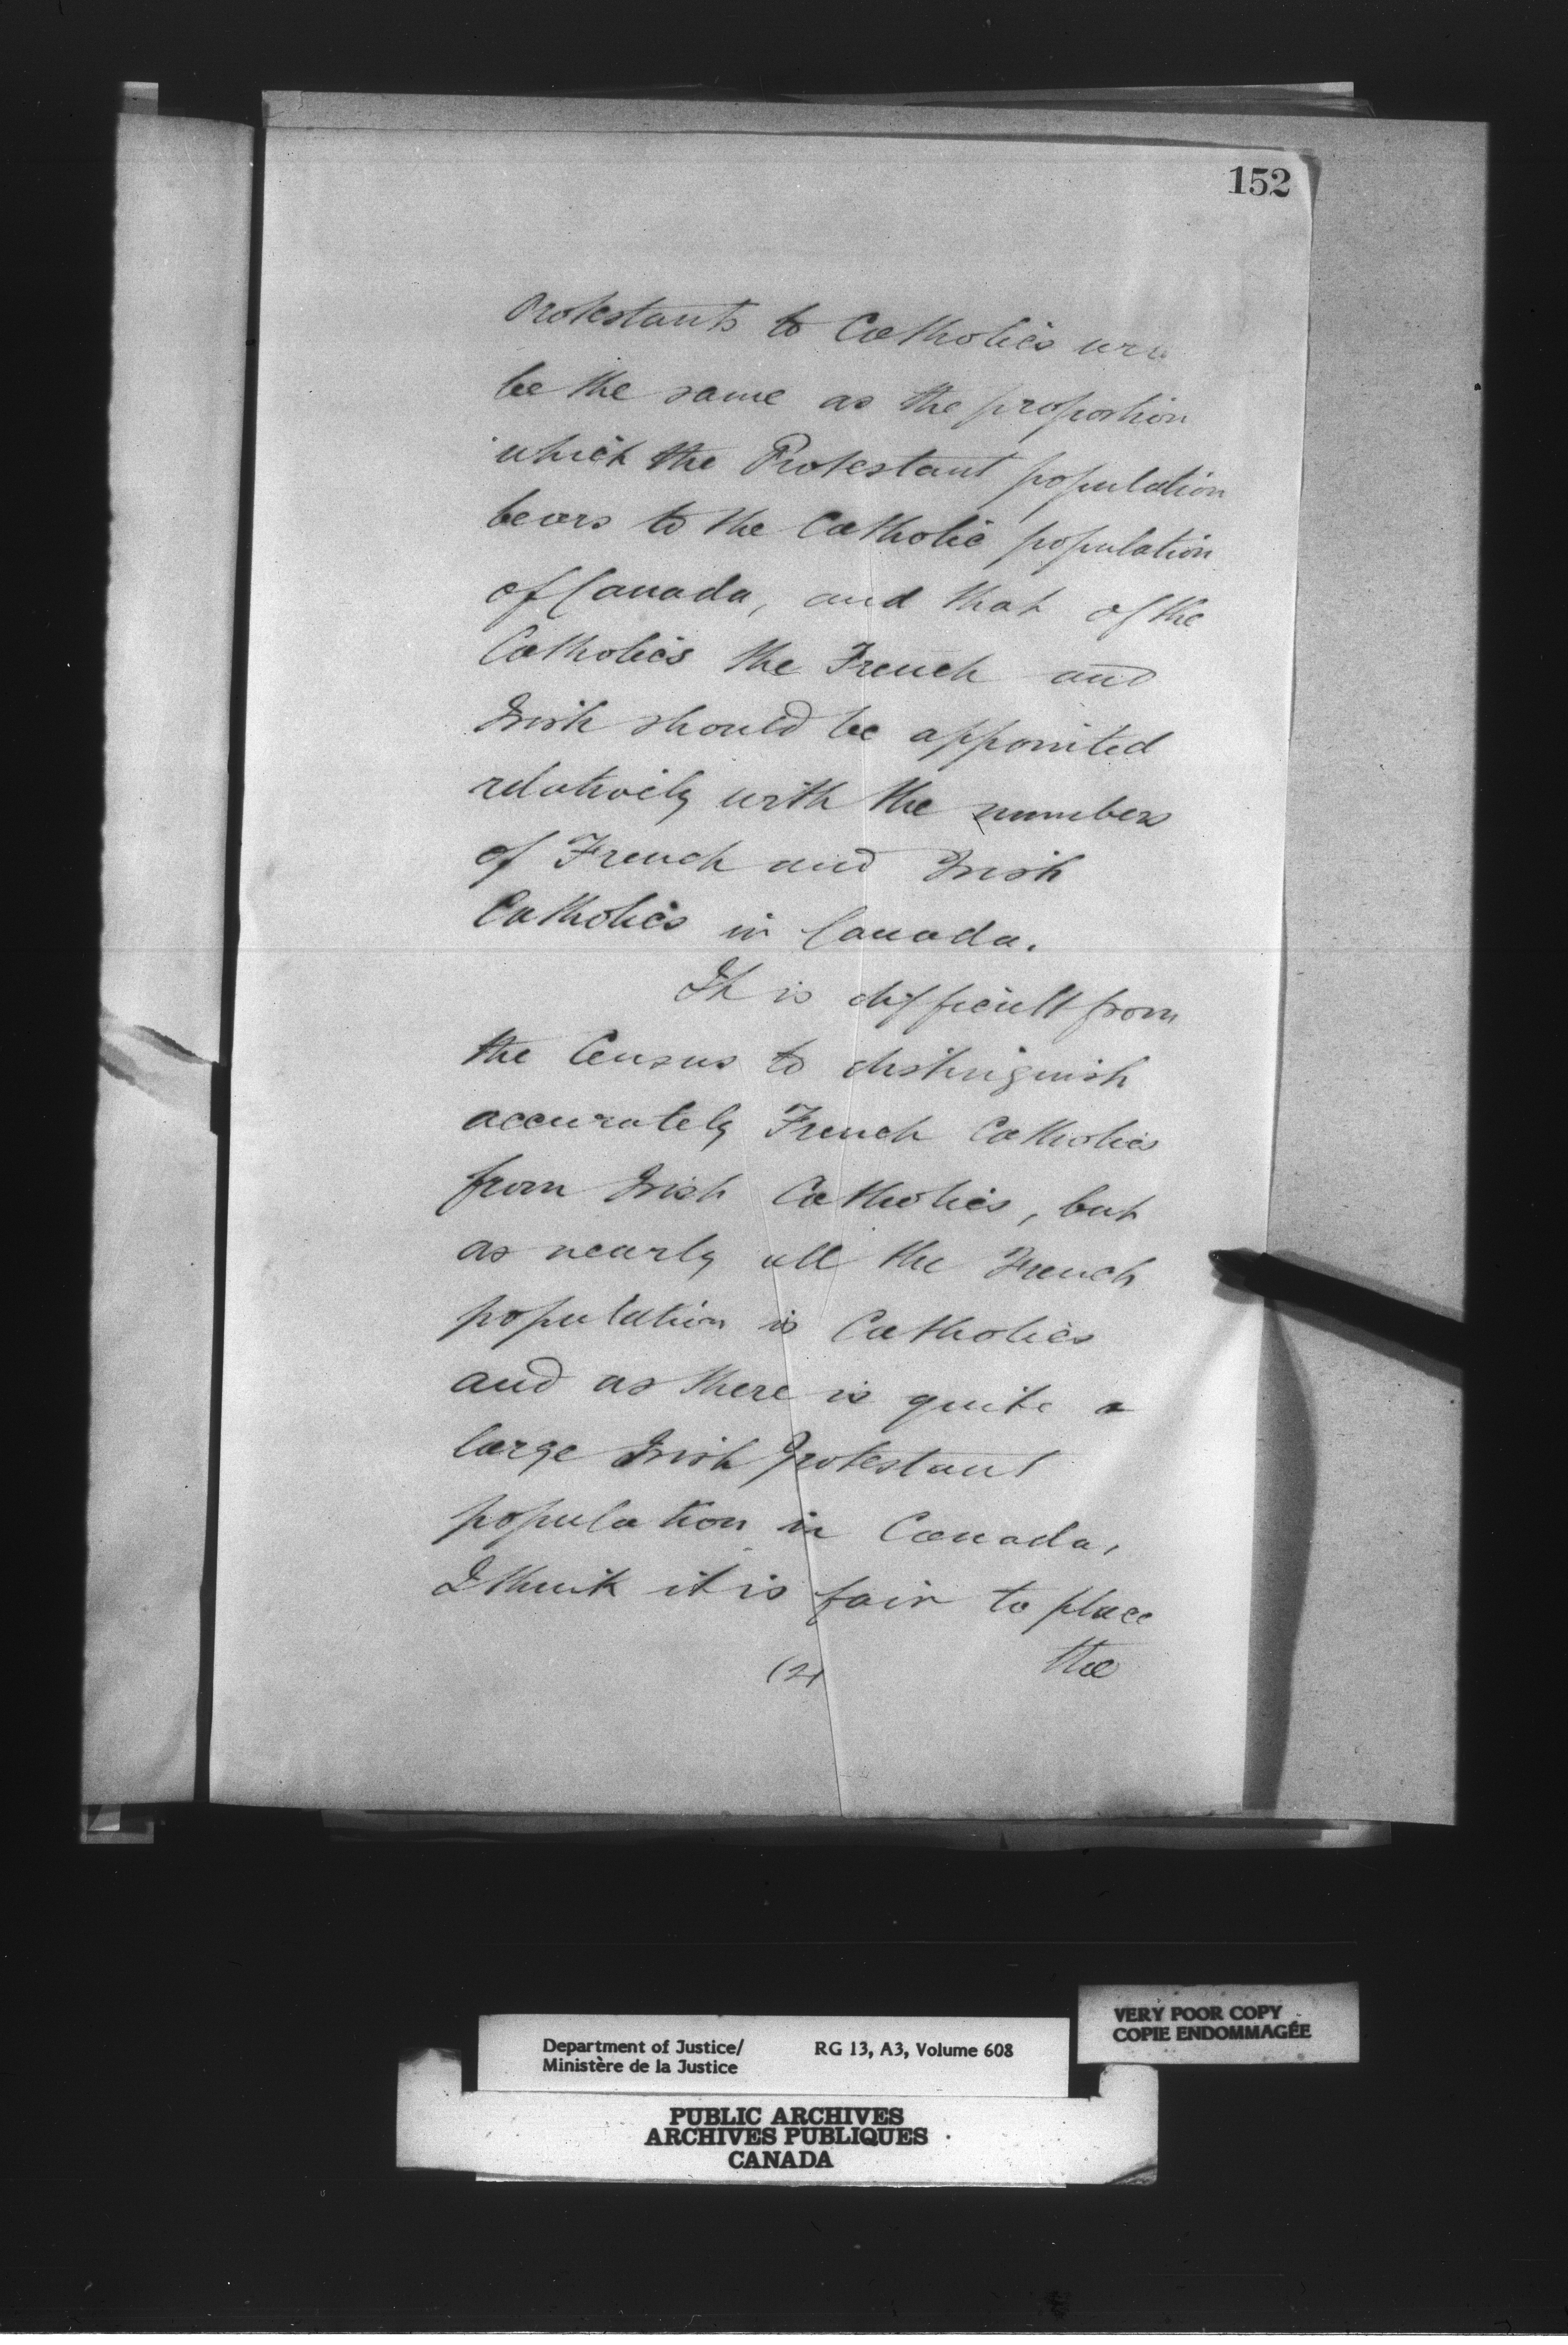 152
Protestants to Catholics
be the same as the proportion
which the Protestant population
bears to the Catholic population
of Canada, and that of the
Catholics the French and
Irish should be appointed
relatively with the numbers
of French and Irish
Catholics in Canada.
It is difficult from
the Census to distinguish
accurately French Catholics
from Irish Catholics, but
as nearly all the French
population is Catholics
and as there is quite a
large Irish Protestant
population in Canada,
I think it is fair to place
(2) the
VERY POOR COPY
COPIE ENDOMMAGÉE
Department of Justice/ RG 13, A3, Volume 608
Ministère de la Justice
PUBLIC ARCHIVES
ARCHIVES PUBLIQUES
CANADA